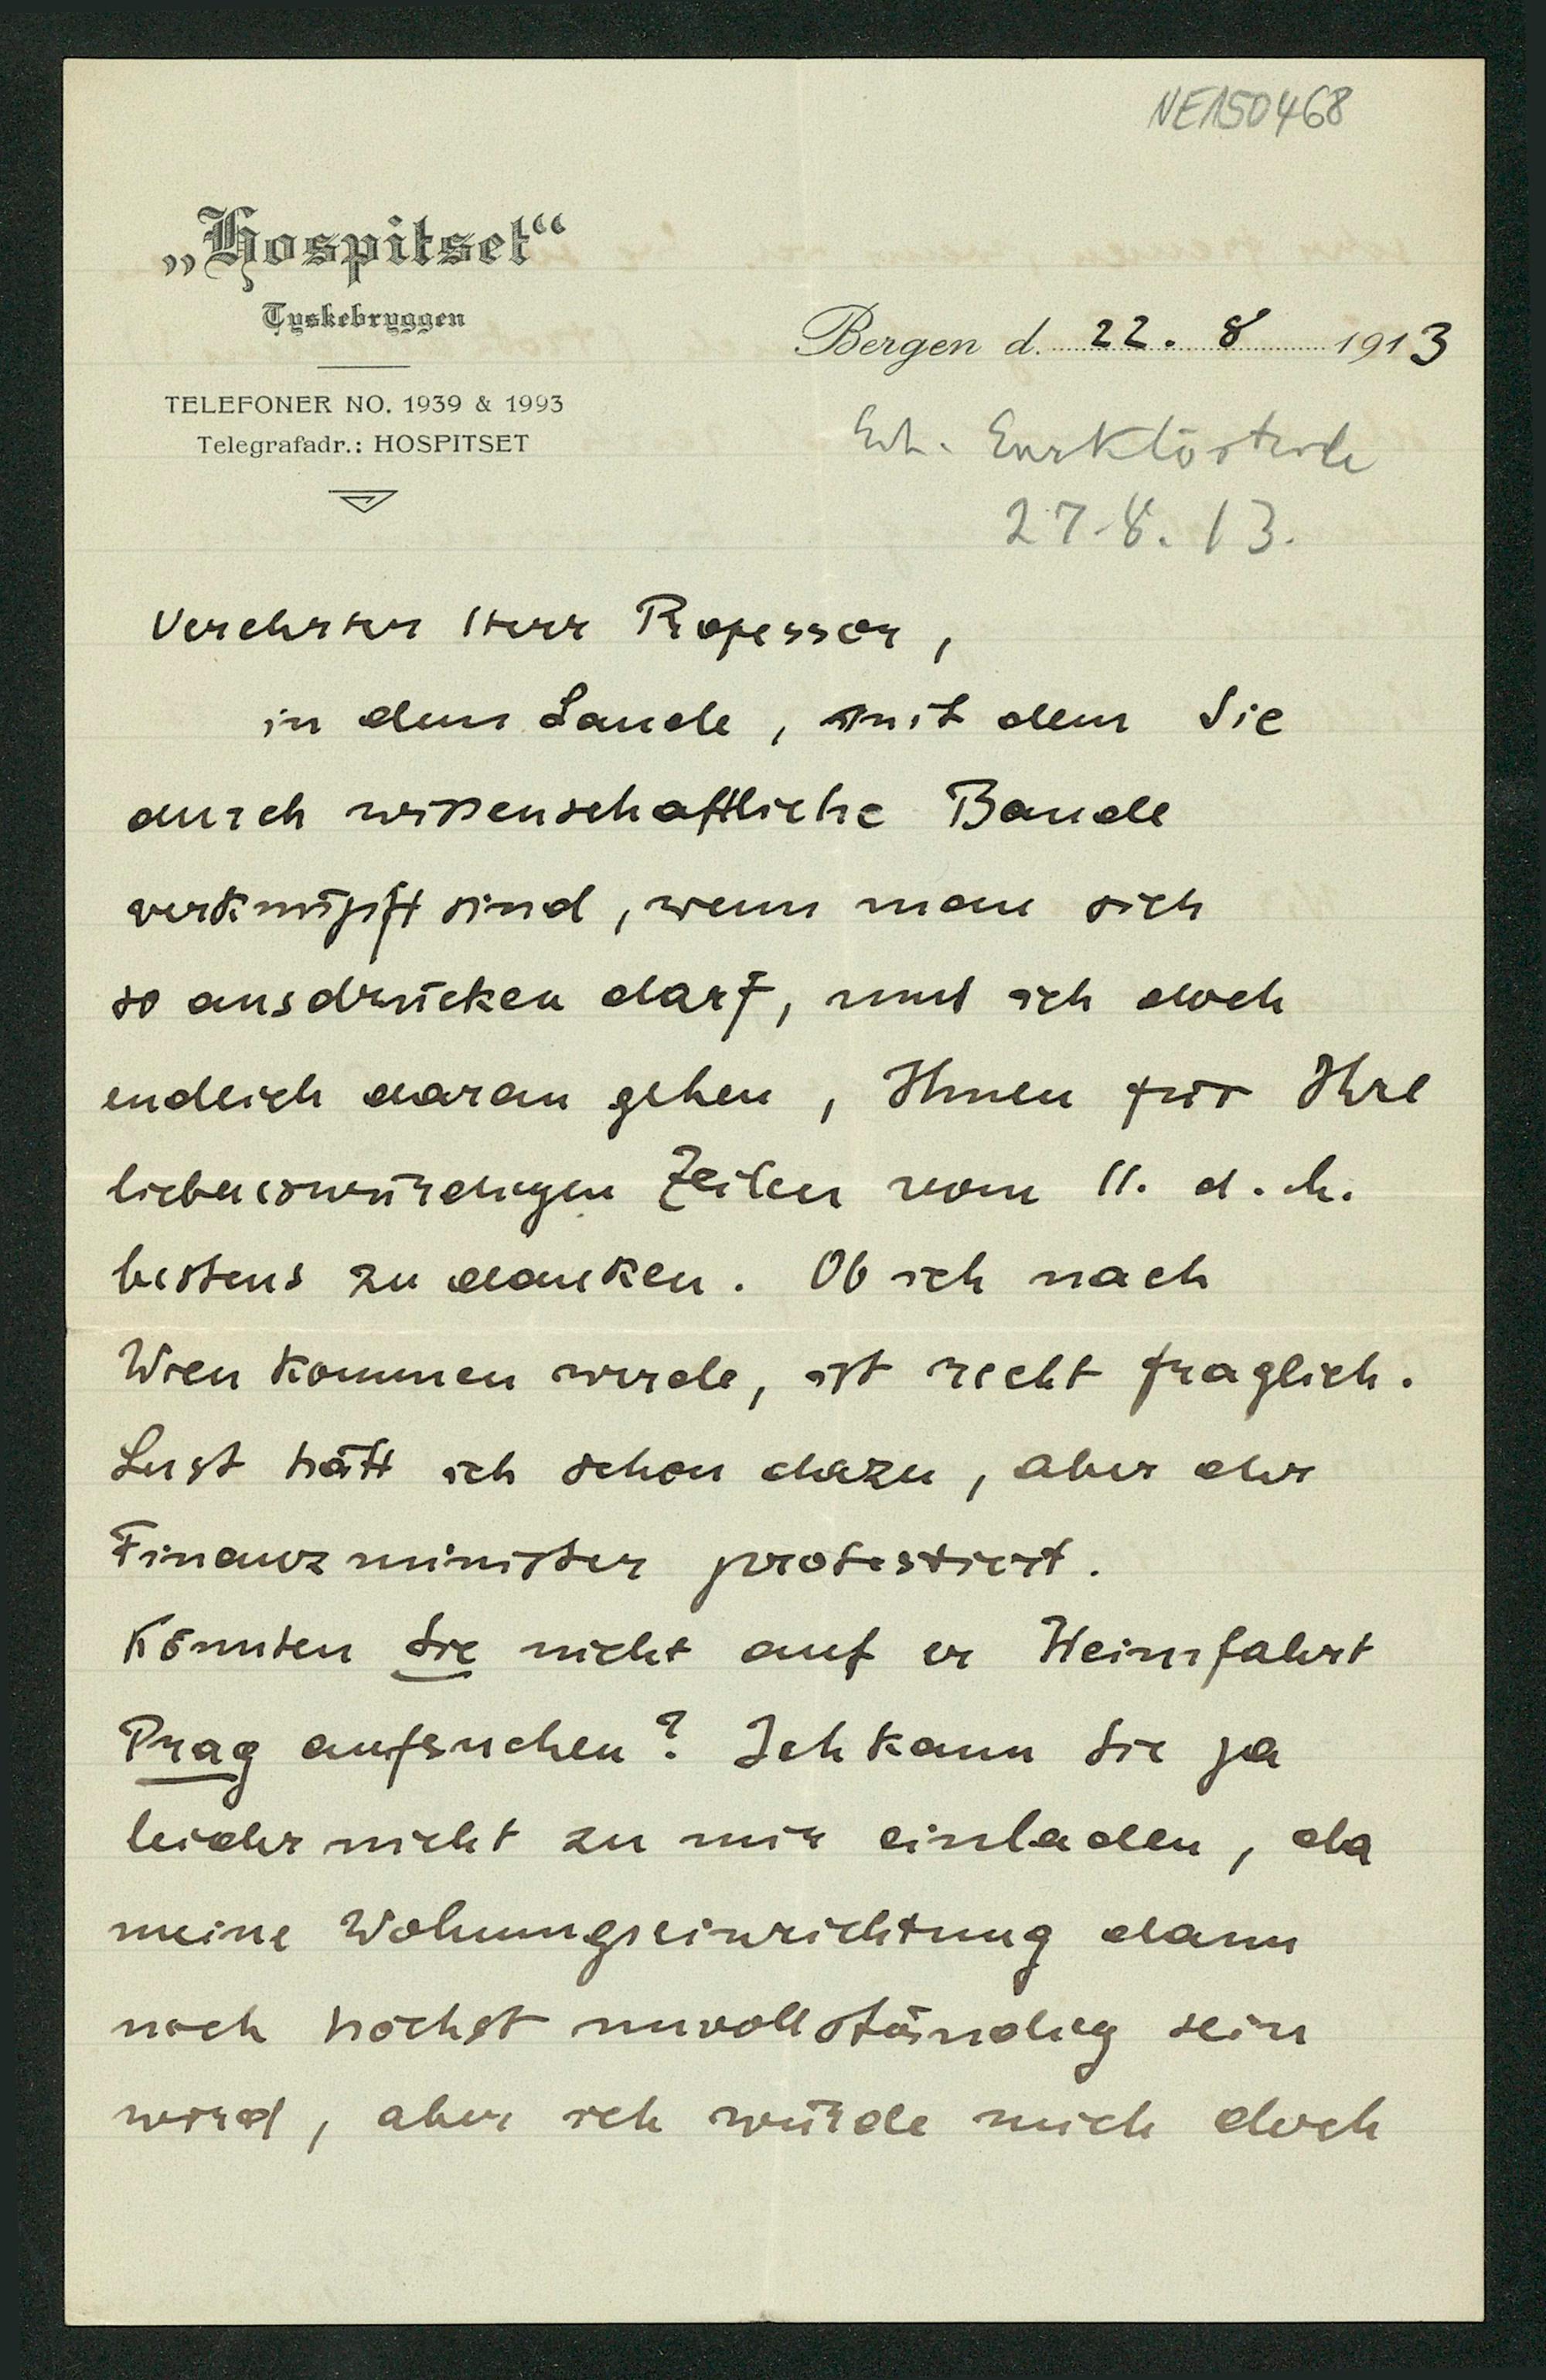 NE150468
„Hospitset“
Tyskebryggen
Bergen d. 22. 8 1913
TELEFONER NO. 1939 & 1993
Telegrafadr.: HOSPITSET
Erh.
27.8.13.
Verehrter Herr Professor,
in dem Lande, mit dem Sie
durch wissenschaftliche Bande
verknüpft sind, wenn man sich
so ausdrücken darf, muß ich doch
endlich daran gehen, Ihnen für Ihre
liebenswürdigen Zeilen vom 11. d. M.
bestens zu danken. Ob ich nach
Wien kommen werde, ist recht fraglich.
Lust hätt ich schon dazu, aber der
Finanzminister protestiert.
Könnten Sie nicht auf er Heimfahrt
Prag aufsuchen? Ich kann Sie ja
leider nicht zu mir einladen, da
meine Wohnungseinrichtung dann
noch höchst unvollständig sein
wird, aber ich würde mich doch